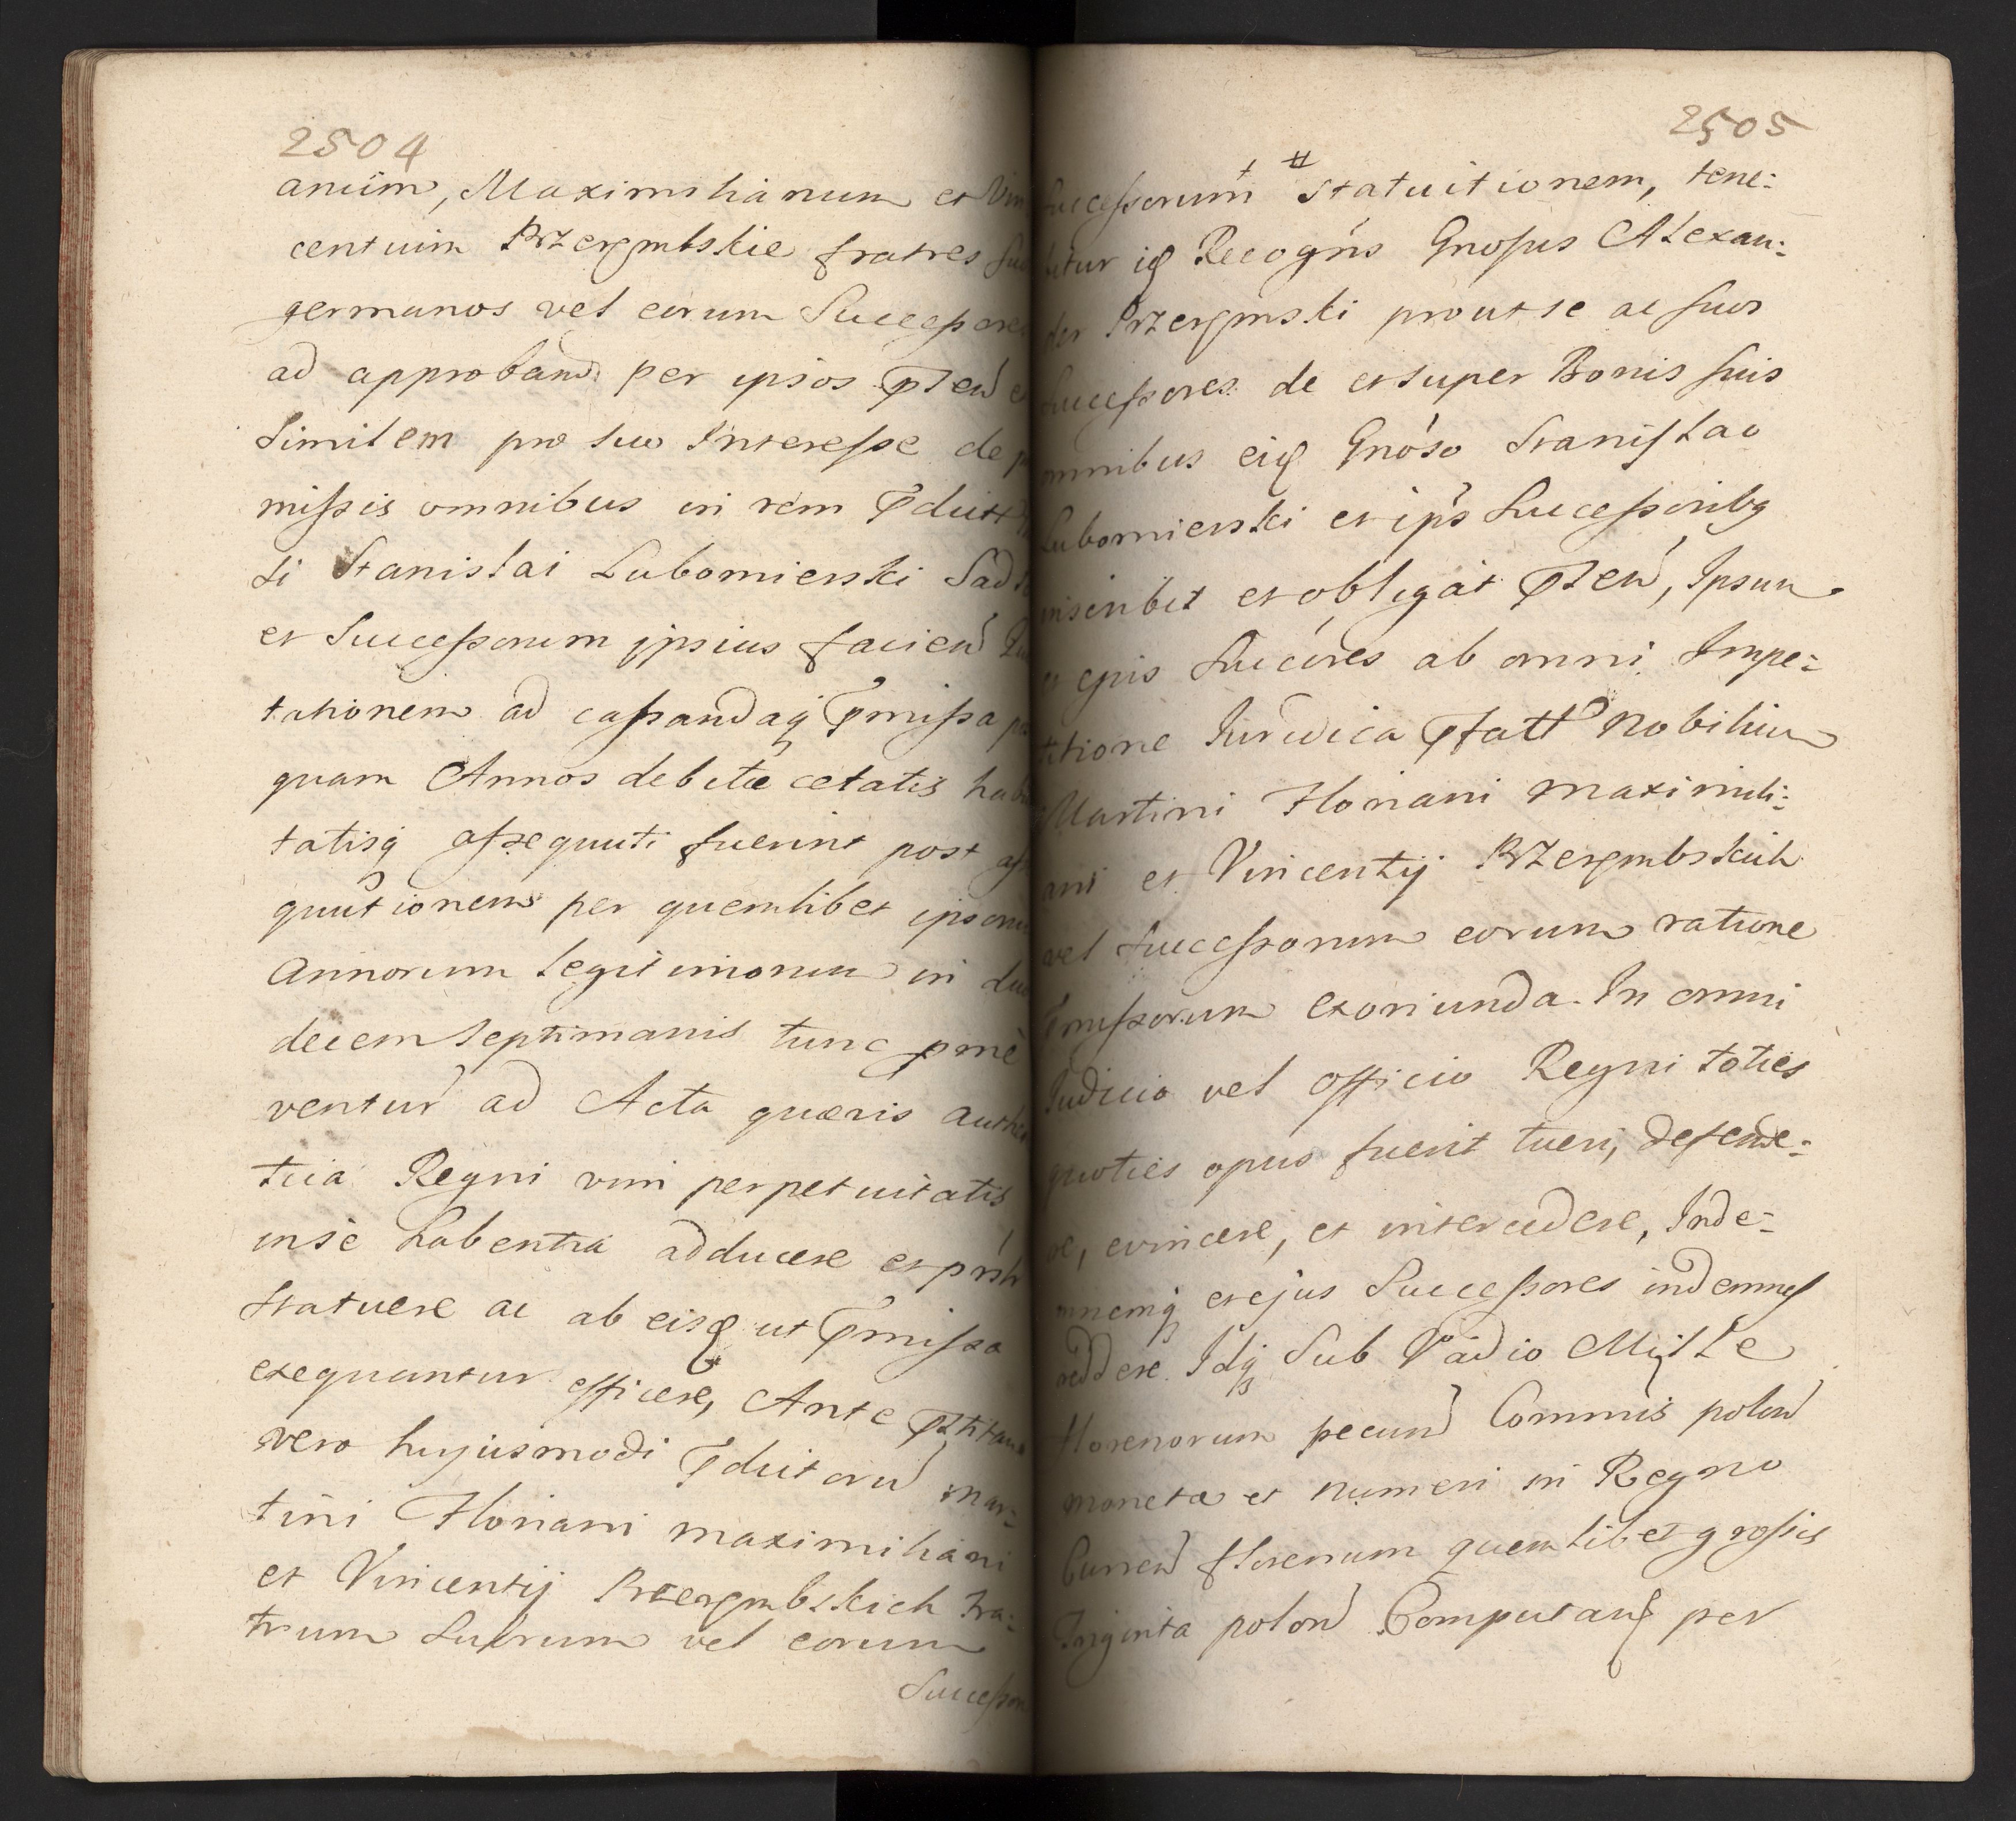 2504
aniim, Maximilianum et Vin
centium Przerembskie fratres suo
germanos vel eorum Successores
ad approband per ipsos pnten
Similem pro suo Interesse de
missis omnibus in rem pduct
si Stanislai Lubomierski Sad
et Successorum ipsius facien
tationem ad cassandaq pmissa
quam Annos debitæ ætatis habi
tatisq assequuti fuerint post ass
quutionem per quemlibet ipsorum
Annorum legitimorum in duo
decem Septimanis tunc pme
ventur ad Acta quævis authen
tica Regni vim perpetuitatis
inse habentia adducere et
Statuere ac ab eisq ut pmissa
exequantur efficere, Ante
vero hujusmodi pductorum Mar:
tini Floriani Maximiliani
et Vincentij Przerembskich fra:
trum suorum vel eorum
Successor
2505
Successorum statuitionem, tene:
bitur iq Recogns Gnosus Alexan:
der Przerembski prout se ac suos
Successores de et super Bonis suis
omnibus eiq Gnoso Stanislao
Lubomierski et ips Successoribq
inscribit et obligat pnten, Ipsum
et epis Succres ab omni Impe:
titione Iuridica pfatt Nobilium
Martini Floriani Maximili:
ani et Vincentij Przerembskich
vel Successorum eorum ratione
pmissorum exoriunda. In omni
Iudicio vel officio Regni toties
quoties opus fuerit tueri, defende:
re, evincere, et intercedere, Inde:
mnemq et ejus Successores indemnes
reddere. Idq Sub Vadio Mille
florenorum pecun Commis polon
moneta et numeri in Regno
Curren florenum quemlibet grossis
Triginta polon Computan per